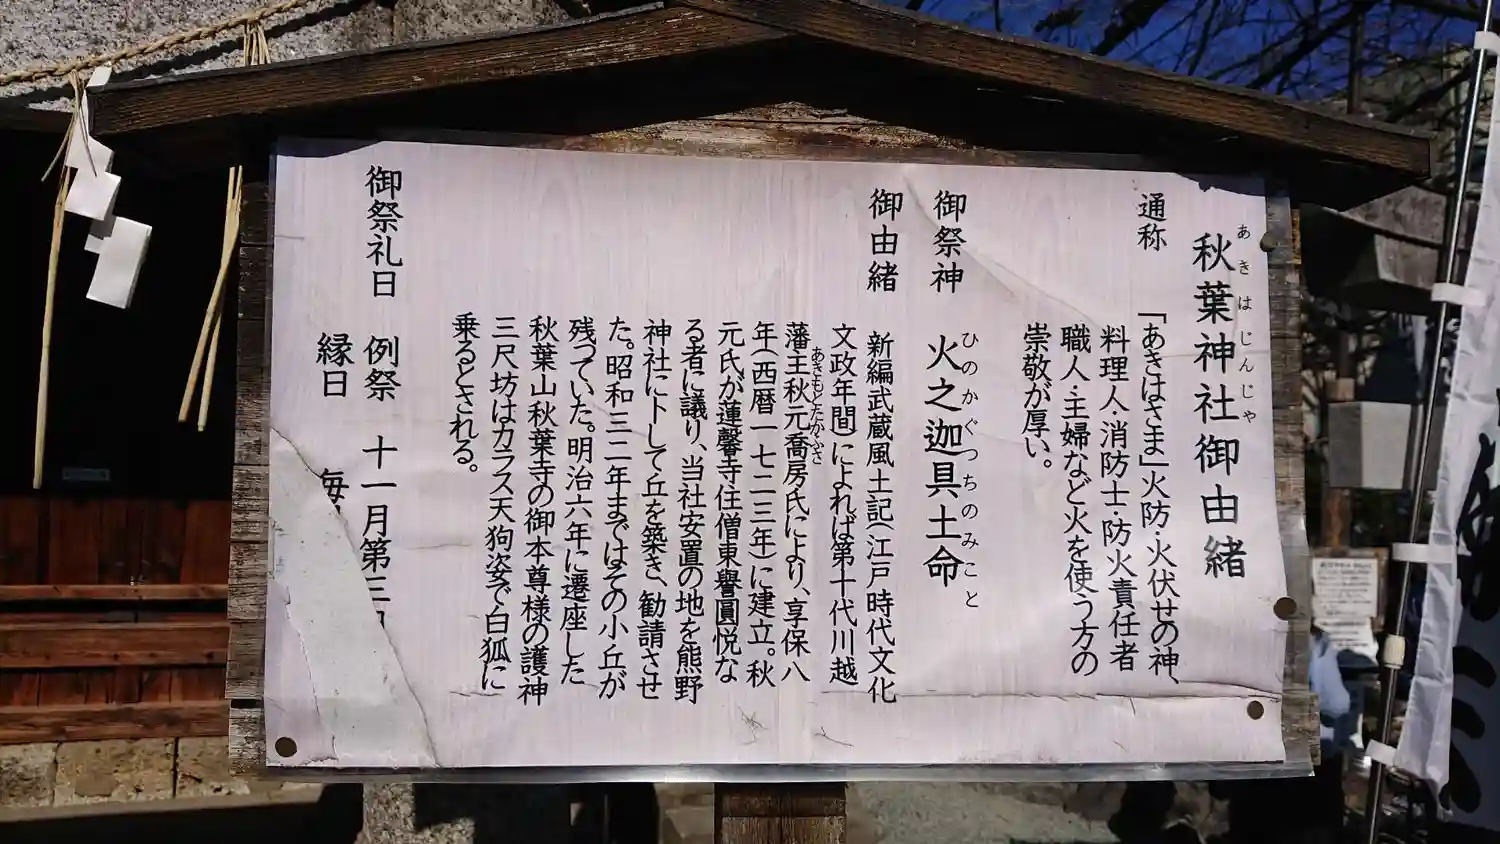 あきはじんじゃ
秋葉神社御由緒
通称
「あきはさま」火防・火伏せの神、
料理人・消防士・防火責任者
職人・主婦など火を使う方の
崇敬が厚い。
御祭神
ひのかぐつちのみこと
火之迦具土命
御由緒
新編武蔵風土記(江戸時代文化
文政年間)によれば第十代川越
あきもとたかふさ
藩主秋元喬房氏により、享保八
年(西暦一七二三年)に建立。秋
元氏が蓮馨寺住僧東譽圓悦な
る者に議り、当社安置の地を熊野
神社に卜して丘を築き、勧請させ
た。昭和三二年まではその小丘が
残っていた。明治六年に遷座した
秋葉山秋葉寺の御本尊様の護神
三尺坊はカラス天狗姿で白狐に
乗るとされる。
御祭礼日
例祭 十一月第三
縁日 毎